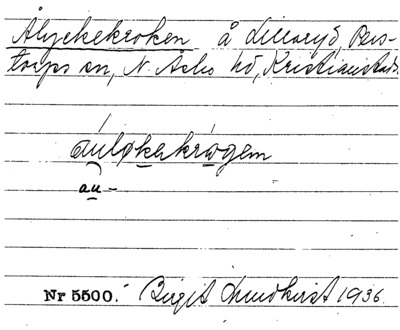 Ålyckekroken å Lillaryd, Pers-
torps sn, N. Åsbo hd, Kristianstads
áuløkekrogem
au-
Nr 5500. Birgit Lundkvist 1936.